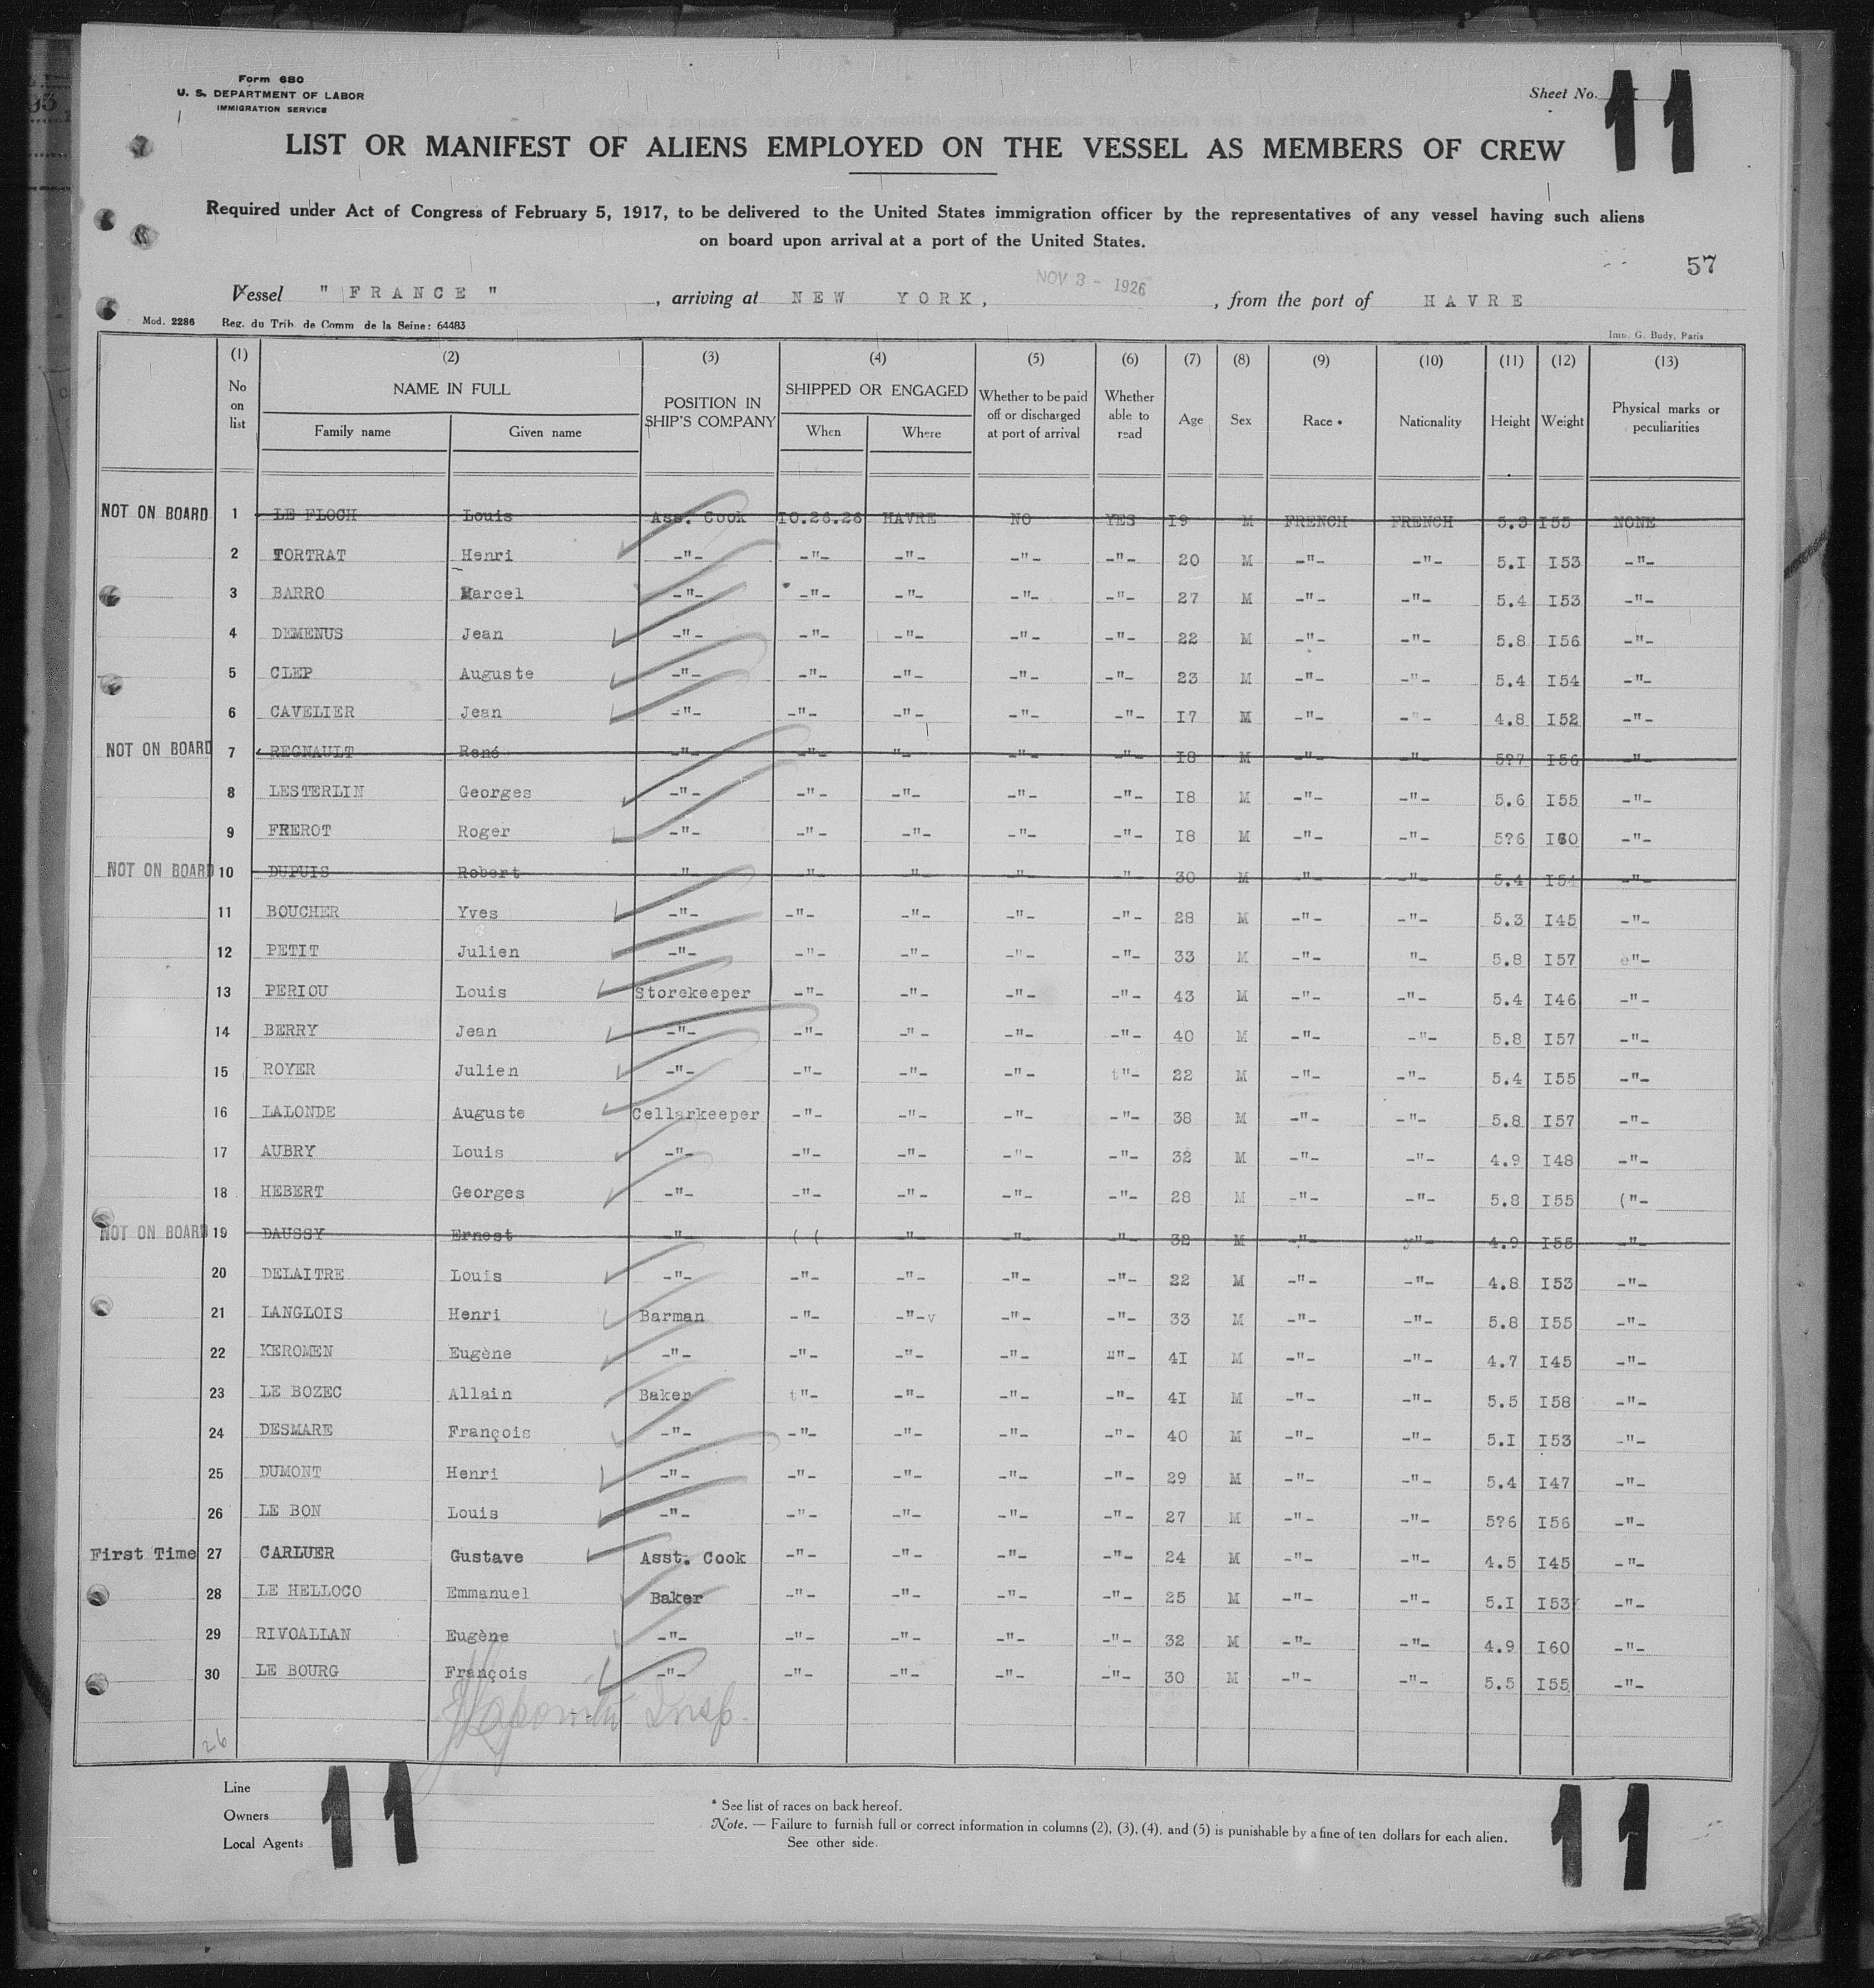 Form 680
U. S. DEPARTMENT OF LABOR
IMMIGRATION SERVICE
Sheet No.
11
LIST OR MANIFEST OF ALIENS EMPLOYED ON THE VESSEL AS MEMBERS OF CREW
Required under Act of Congress of February 5, 1917, to be delivered to the United States immigration officer by the representatives of any vessel having such aliens
on board upon arrival at a port of the United States.
57
Vessel " FRANCE " , arriving at NEW YORK, NOV 3 - 1926 , from the port of HAVRE
Mod. 2286 Reg. du Trib. de Comm de la Seine: 64483 Imp. G. Budy, Paris
(1) (2) (3) (4) (5) (6) (7) (8) (9) (10) (11) (12) (13)
No on list NAME IN FULL Family name Given name POSITION IN SHIP'S COMPANY SHIPPED OR ENGAGED When Where Whether to be paid off or discharged at port of arrival Whether able to read Age Sex Race * Nationality Height Weight Physical marks or peculiarities
NOT ON BOARD 1 LE FLOCH Louis Ass. Cook I0.26.26 HAVRE NO YES I9 M FRENCH FRENCH 5.3 I55 NONE
2 TORTRAT Henri -"- -"- -"- -"- -"- 20 M -"- -"- 5.I I53 -"-
3 BARRO Marcel -"- -"- -"- -"- -"- 27 M -"- -"- 5.4 I53 -"-
4 DEMENUS Jean -"- -"- -"- -"- -"- 22 M -"- -"- 5.8 I56 -"-
5 CLEP Auguste -"- -"- -"- -"- -"- 23 M -"- -"- 5.4 I54 -"-
6 CAVELIER Jean -"- -"- -"- -"- -"- I7 M -"- -"- 4.8 I52 -"-
NOT ON BOARD 7 REGNAULT René -"- -"- "- -"- -"- I8 M -"- -"- 5?7 I56 -"-
8 LESTERLIN Georges -"- -"- -"- -"- -"- I8 M -"- -"- 5.6 I55 -"-
9 FREROT Roger -"- -"- -"- -"- -"- I8 M -"- -"- 5?6 I60 -"-
NOT ON BOARD 10 DUPUIS Robert -"- -"- -"- -"- -"- 30 M -"- -"- 5.4 I54 -"-
11 BOUCHER Yves -"- -"- -"- -"- -"- 28 M -"- -"- 5.3 I45 -"-
12 PETIT Julien -"- -"- -"- -"- -"- 33 M -"- "- 5.8 I57 e"-
13 PERIOU Louis Storekeeper -"- -"- -"- -"- 43 M -"- -"- 5.4 I46 -"-
14 BERRY Jean -"- -"- -"- -"- -"- 40 M -"- -"- 5.8 I57 -"-
15 ROYER Julien -"- -"- -"- -"- t"- 22 M -"- -"- 5.4 I55 -"-
16 LALONDE Auguste Cellarkeeper -"- -"- -"- -"- 38 M -"- -"- 5.8 I57 -"-
17 AUBRY Louis -"- -"- -"- -"- -"- 32 M -"- -"- 4.9 I48 -"-
18 HEBERT Georges -"- -"- -"- -"- -"- 28 M -"- -"- 5.8 I55 ("-
NOT ON BOARD 19 DAUSSY Ernest -"- ( ( -"- -"- -"- 32 M -"- y"- 4.9 I55 -"-
20 DELAITRE Louis -"- -"- -"- -"- -"- 22 M -"- -"- 4.8 I53 -"-
21 LANGLOIS Henri Barman -"- -"-v -"- -"- 33 M -"- -"- 5.8 I55 -"-
22 KEROMEN Eugène -"- -"- -"- -"- ""- 4I M -"- -"- 4.7 I45 -"-
23 LE BOZEC Allain Baker t"- -"- -"- -"- 4I M -"- -"- 5.5 I58 -"-
24 DESMARE François -"- -"- -"- -"- -"- 40 M -"- -"- 5.I I53 -"-
25 DUMONT Henri -"- -"- -"- -"- -"- 29 M -"- -"- 5.4 I47 -"-
26 LE BON Louis -"- -"- -"- -"- -"- 27 M -"- -"- 5?6 I56 -"-
First Time 27 CARLUER Gustave Asst. Cook -"- -"- -"- -"- 24 M -"- -"- 4.5 I45 -"-
28 LE HELLOCO Emmanuel Baker -"- -"- -"- -"- 25 M -"- -"- 5.I I53 -"-
29 RIVOALLAN Eugène -"- -"- -"- -"- -"- 32 M -"- -"- 4.9 I60 -"-
30 LE BOURG François -"- -"- -"- -"- -"- 30 M -"- -"- 5.5 I55 -"-
Insp.
26
Line
Owners
Local Agents
11
* See list of races on back hereof.
Note. — Failure to furnish full or correct information in columns (2), (3), (4), and (5) is punishable by a fine of ten dollars for each alien.
See other side.
11